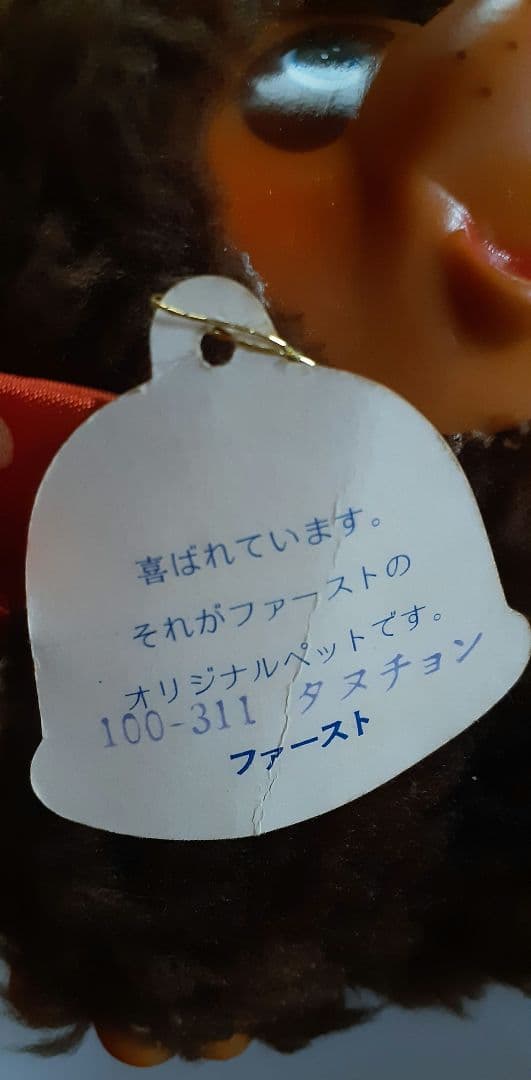 喜ばれています。
それがファーストの
オリジナルペットです。
100-311 タヌチョン
ファースト